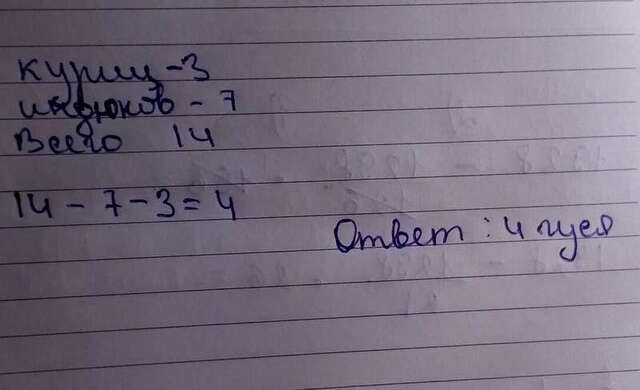 куриц - 3
индюков - 7
Всего 14
14 - 7 - 3 = 4
Ответ : 4 гуся